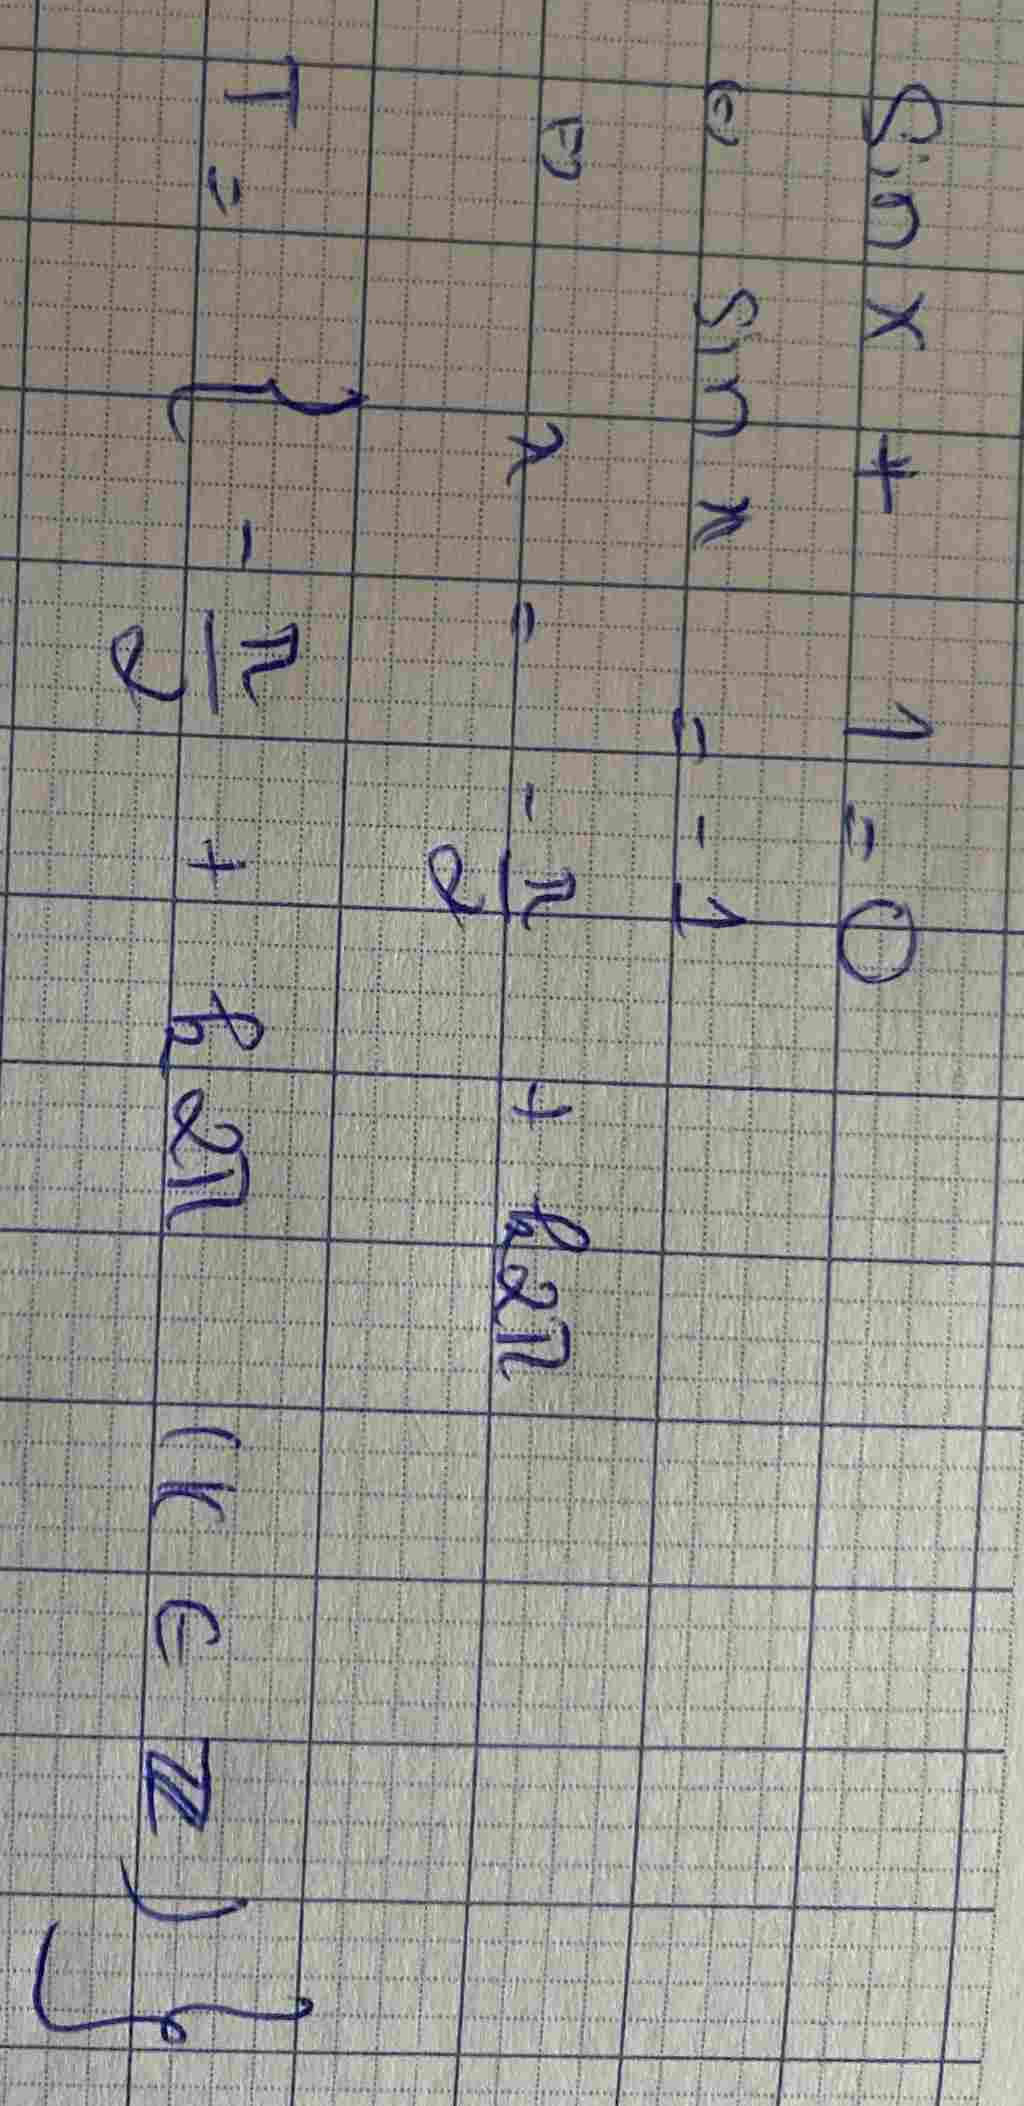 Sin x + 1 = 0
⇔ Sin x = -1
⇔ x = - π/2 + k2π
T = { - π/2 + k2π (k ∈ ℤ) }